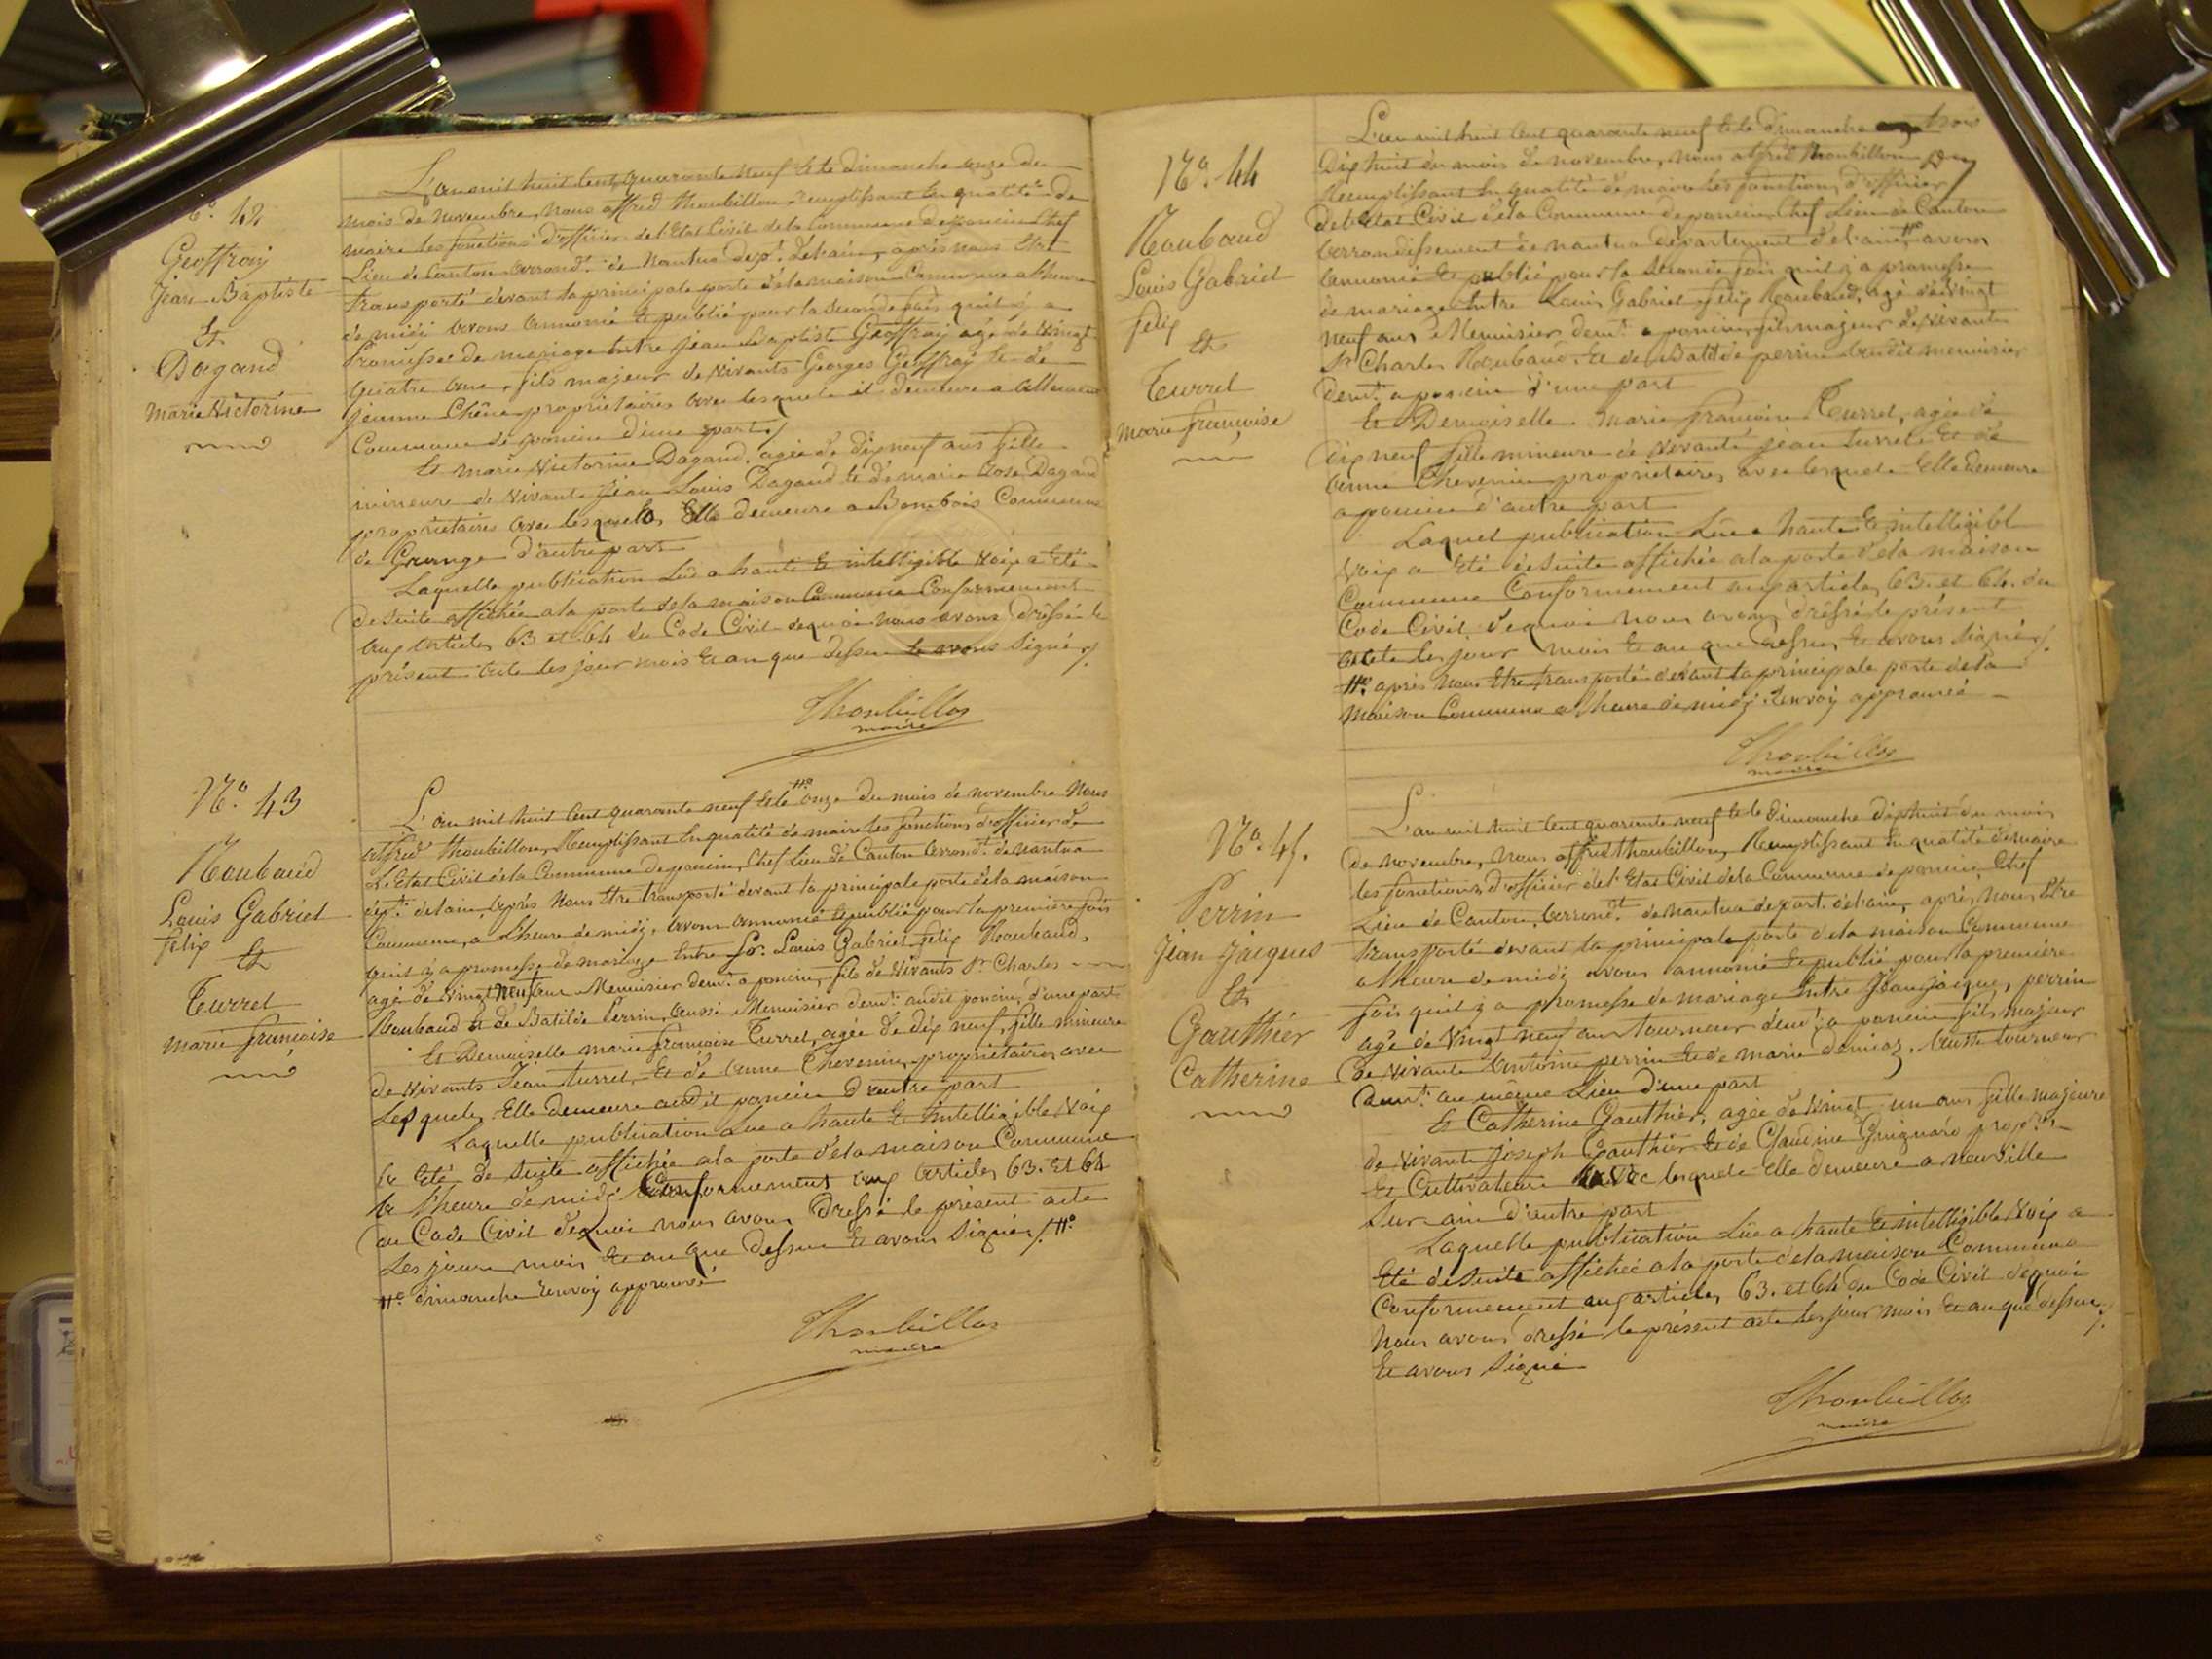 N°. 42
Geoffroy
Jean Baptiste
Et
Dagand
Marie Victorine
L'an mil huit Cent quarante neuf Et le dimanche onze du
mois de novembre, Nous alfred thoubillon Remplissant En qualité de
maire les fonctions d'officier del'Etat Civil dela Commune deponcin Chef
Lieu de Canton arrond.t de Nantua dep.t del'ain, après nous Etre
transporté devant la principale porte dela maison Commune a l'heure
de midi avons annoncé Et publié pour la seconde fois qu'il y a
Promesse de mariage Entre Jean Baptiste Geoffroy agé de Vingt
quatre ans, fils majeur de Vivants Georges Geoffroy Et de
jeanne Chêne propriétaires avec lesquels il demeure a allement
Commune de poncin d'une part /
Et marie Victorine Dagand, agée de dix neuf ans fille
mineure de Vivants Jean Louis Dagand Et de marie Rose Dagand
propriétaires avec lesquels Elle demeure a Bombois Commune
de Grange d'autre part
Laquelle publication Lûe a haute Et intelligible Voix a Eté
de suite affichée a la porte dela maison Commune Conformement
aux articles 63 et 64 du Code Civil dequoi nous avons dréssé le
présent acte les jour mois Et an que dessus Et avons Signé /.
Thoubillon
maire
N°. 43
Raubaud
Louis Gabriel
felix
Et
Turrel
marie françoise
L'an mil huit Cent quarante neuf Et le #° onze du mois de novembre Nous
alfred thoubillon, Remplissant En qualité de maire les fonctions d'officier de
L'Etat Civil dela Commune deponcin, Chef Lieu de Canton arrond.t de Nantua
dep.t delain, après Nous Etre transporté devant la principale porte dela maison
Commune, a L'heure de midi, avons annoncé Et publié pour la première fois
quil y a promesse de mariage Entre Sr. Louis Gabriel felix Raubaud,
agé de Vingt Neuf ans Menuisier dem.t a poncin, fils de Vivants Sr Charles
Raubaud Et de Batilde Perrin, aussi Menuisier dem.t audit poncin, d'une part
Et Demoiselle marie françoise Turrel, agée de dix neuf, fille mineure
de Vivants Jean turrel, Et de anne Thevenin, propriétaires avec
Lesquels Elle demeure audit poncin d'autre part
Laquelle publication Lue a haute Et intelligible Voix
a Eté de suite affichée ala porte dela maison Commune
a l'heure de midi Conformement aux articles 63. Et 64
du Code Civil dequoi nous avons Dressé le présent acte
Les jour, mois Et an que dessus Et avons Signés /. #°
#° dimanche Renvoy approuvé
Thoubillon
maire
N°. 44
Raubaud
Louis Gabriel
felix
Et
Turrel
marie françoise
L'an mil huit Cent quarante neuf Et le dimanche
Dix huit du mois de novembre, nous alfred thoubillon
Remplissant En qualité de maire les fonctions d'officier
Del'Etat Civil dela Commune de poncin, Chef Lieu de Canton
arrondissement de nantua département del'ain, #° avons
annoncé Et publié pour la seconde fois quil y a promesse
de mariage Entre Louis Gabriel felix Raubaud, agé de Vingt
neuf ans Menuisier dem.t a poncin, fils majeur de Vivants
Sr Charles Raubaud Et de Batilde perrin audit menuisier
dem.t a poncin d'une part
Et Demoiselle marie françoise Turrel, agée de
dix neuf fille mineure de Vivants jean turrel Et de
anne Thevenin propriétaires avec lesquels Elle demeure
a poncin d'autre part
Laquel publication Lûe a haute Et intelligibl
Voix a Eté de suite affichée ala porte dela maison
Commune Conformement aux articles 63. et 64. du
Code Civil dequoi nous avons dréssé le présent
acte les jour mois Et an que dessus Et avons Signé /.
#° après Nous Etre transporté devant la principale porte dela
maison Commune a l'heure de midi. Renvoy approuvé
Thoubillon
maire
N°. 45.
Perrin
Jean Jacques
Et
Gauthier
Catherine
L'an mil huit Cent quarante neuf Et le Dimanche dix huit du mois
de novembre, Nous alfred thoubillon, Remplissant En qualité de maire
les fonctions d'officier del'Etat Civil dela Commune de poncin, Chef
Lieu de Canton, arrond.t de nantua depart. delain, après Nous Etre
transporté devant la principale porte dela maison Commune
a Lheure de midi avons annoncé Et publié pour la première
fois quil y a promesse de mariage Entre Jean jacques perrin
agé de Vingt neuf ans tourneur dem.t a poncin fils majeur
de Vivants antoine perrin Et de marie , aussi tourneur
dem.t au même Lieu d'une part
Et Catherine Gauthier, agée de Vingt un ans fille majeure
de Vivants Joseph Gauthier Et de Claudine Guignard prop.res
Et Cultivateurs avec lesquels Elle demeure a neuville
sur ain d'autre part
Laquelle publication Lûe a haute Et intelligible Voix a
Eté de suite affichée ala porte dela maison Commune
Conformement aux articles 63. et 64 du Code Civil dequoi
Nous avons dressé le présent acte les jour mois Et an que dessus
Et avons Signé /.
Thoubillon
maire